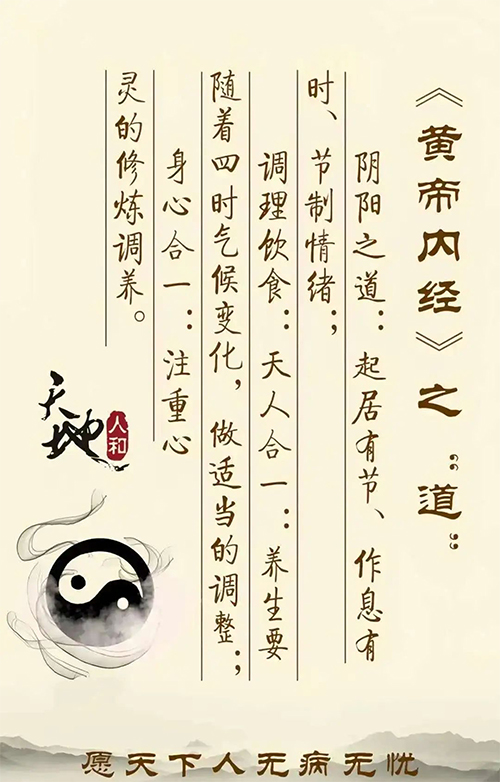 《黄帝内经》之“道”
阴阳之道：起居有节、作息有
时、节制情绪；
调理饮食：天人合一：养生要
随着四时气候变化，做适当的调整；
身心合一：注重心
灵的修炼调养。
天地
人和
愿天下人无病无忧